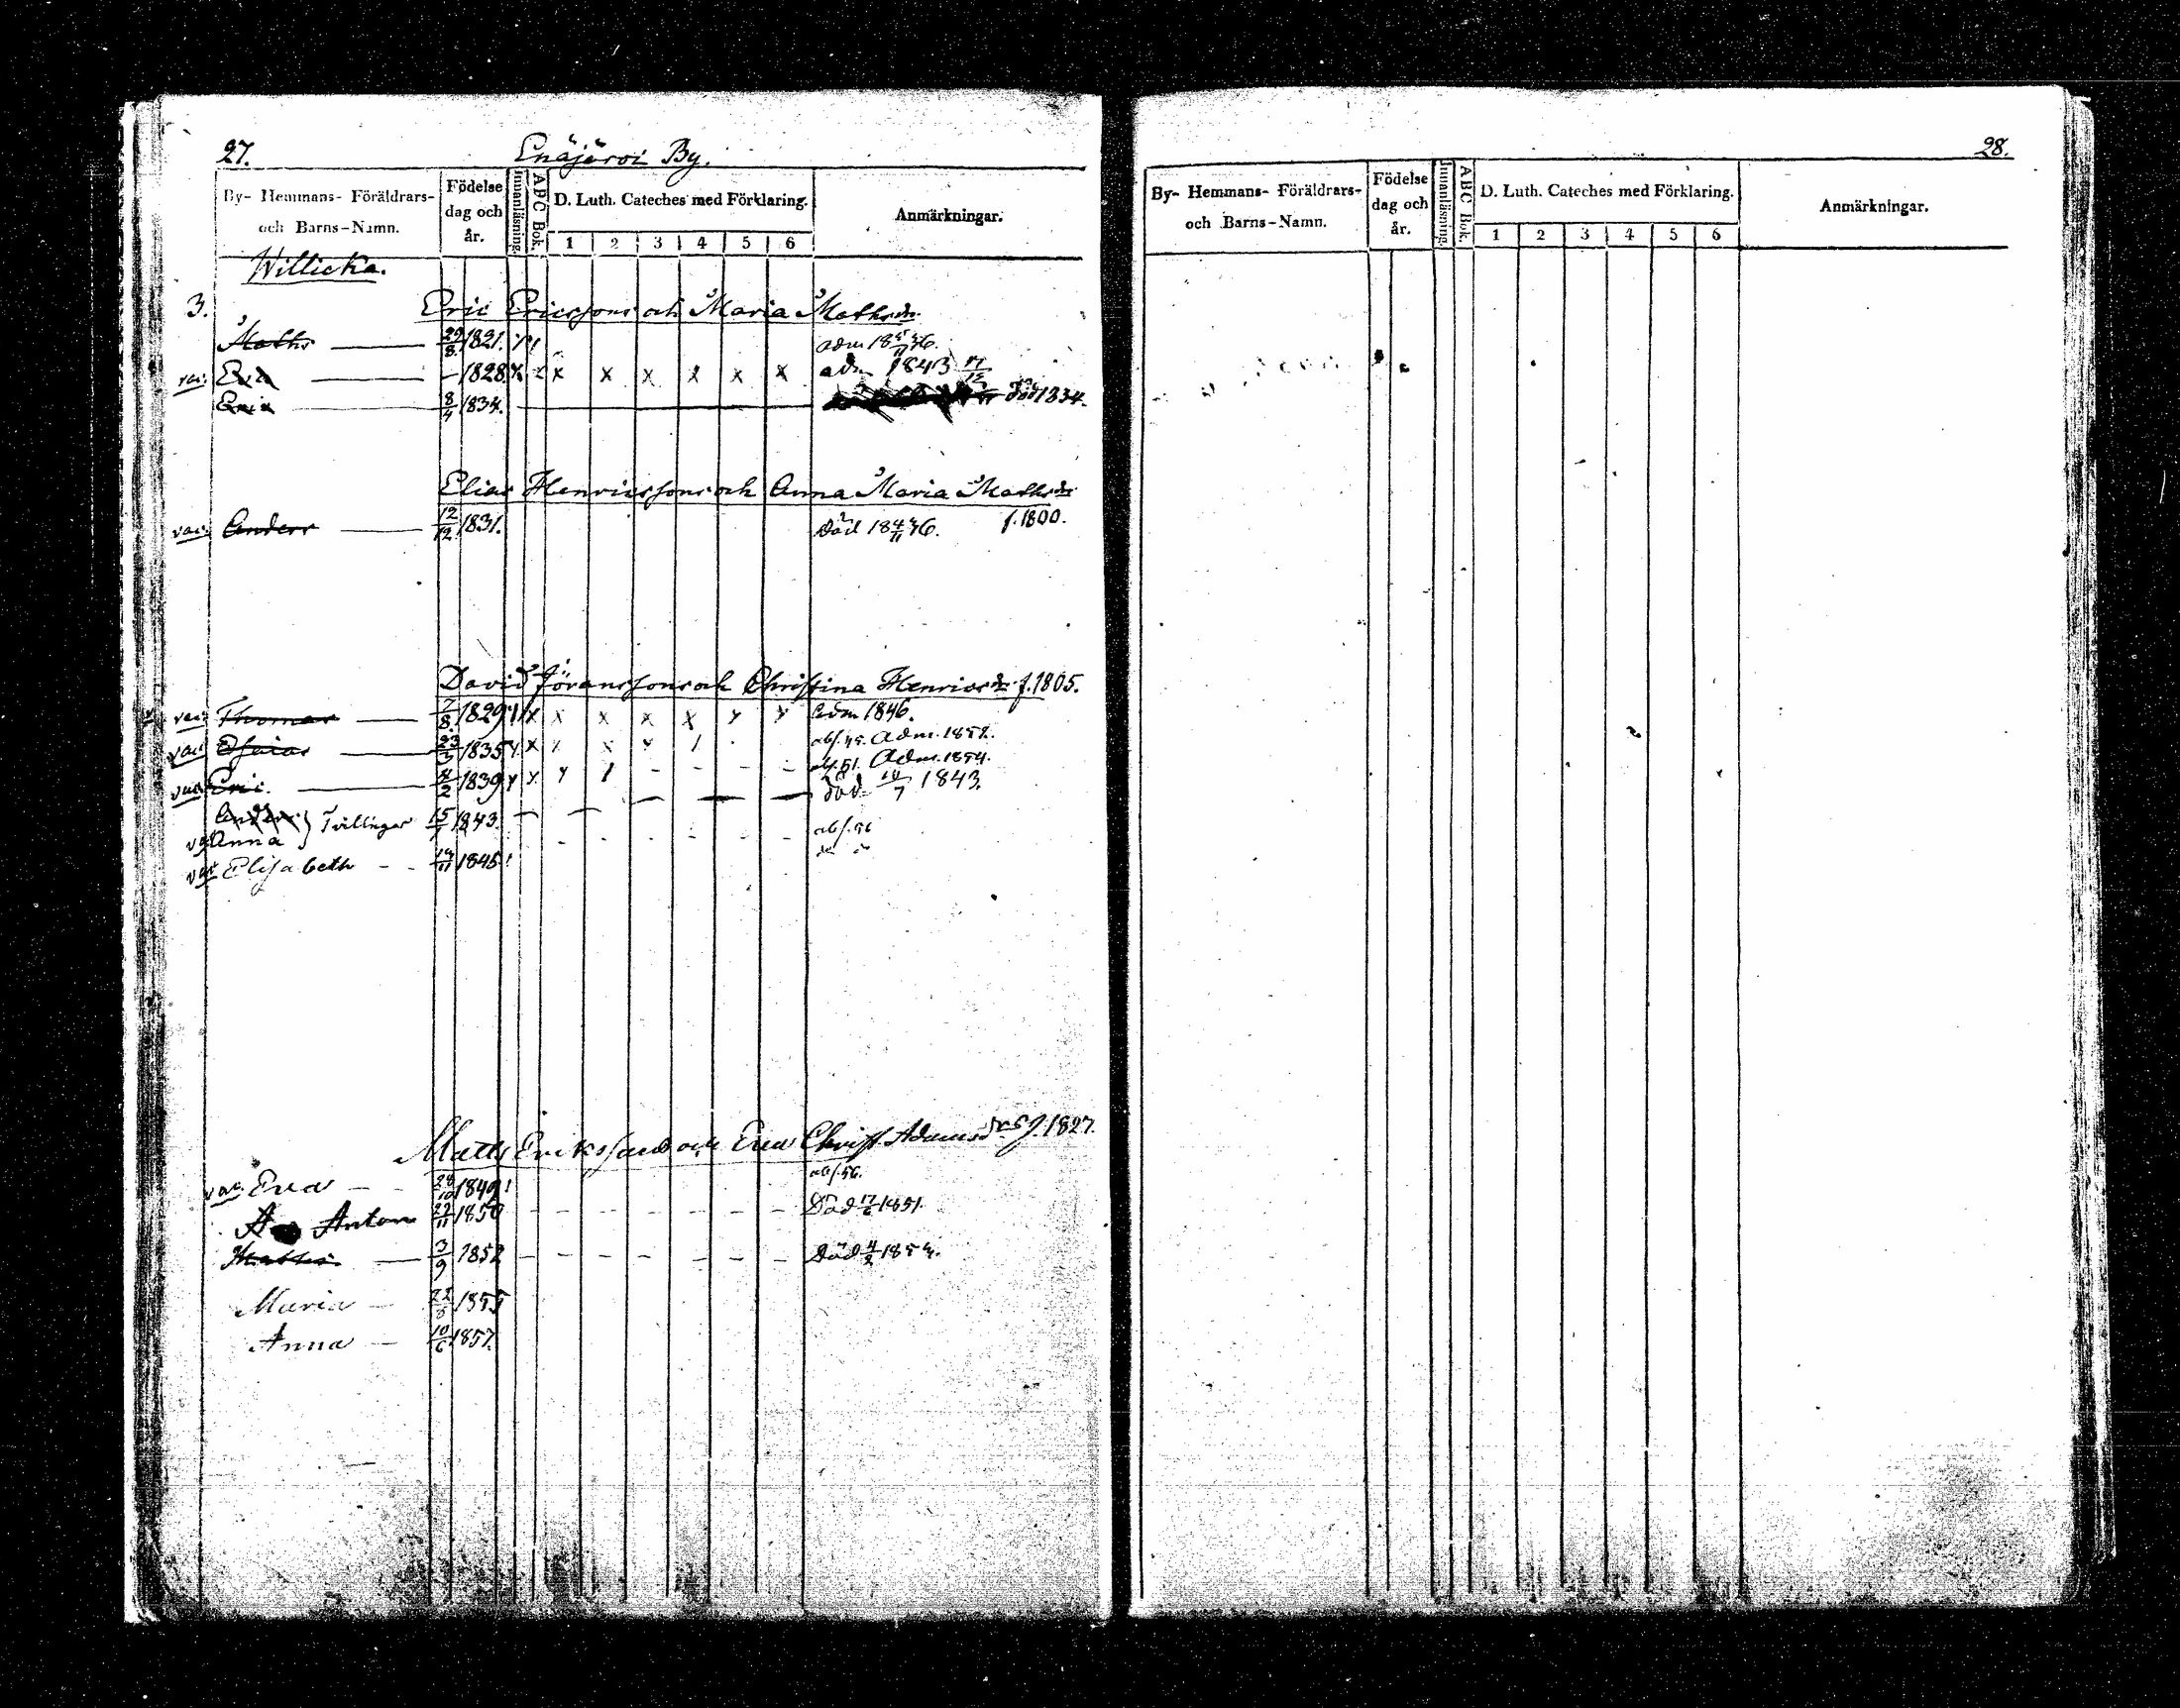 27.
Enäjärvi By.
By- Hemmans- Föräldrars- och Barns-Namn.
Födelse dag och år.
Innanläsning.
ABC Bok.
D. Luth. Cateches med Förklaring.
1 2 3 4 5 6
Anmärkningar.
Willicka.
3. Eric Ericssons och Maria Mathsdr
Maths 29/8 1821. adm 18 5/11 36.
vac. Eric – 1828. x x x x x x adm 1843 17/12
Eric 8/4 1834. död 1834.
Elias Henricssons och Anna Maria Mathsdr f. 1800.
vac. Anders 12/12 1831. Död 18 4/11 36.
David Göranssons och Christina Henricsdr f. 1805.
vac. Thomas 7/8 1829 x x x x x x x adm 1846.
vac. Esaias 23/3 1835 abs. 49. Adm. 1852.
vac. Eric 4/2 1839 abs. 51. Adm. 1854.
Anders } Tvillingar 15/1 1843. död /7 1843.
vac Anna abs. 56
vac Elisabeth 14/11 1845
Matts Erikssons och Eva Christ. Adamsdr f. 1827.
vac. Eva 28/10 1849 abs. 56.
Anton 22/11 1850 Död 17/6 1851.
Matths 3/9 1852 Död 4/2 1854.
Maria 22/8 1855
Anna 10/6 1857.
28.
By- Hemmans- Föräldrars- och Barns-Namn.
Födelse dag och år.
Innanläsning.
ABC Bok.
D. Luth. Cateches med Förklaring.
1 2 3 4 5 6
Anmärkningar.